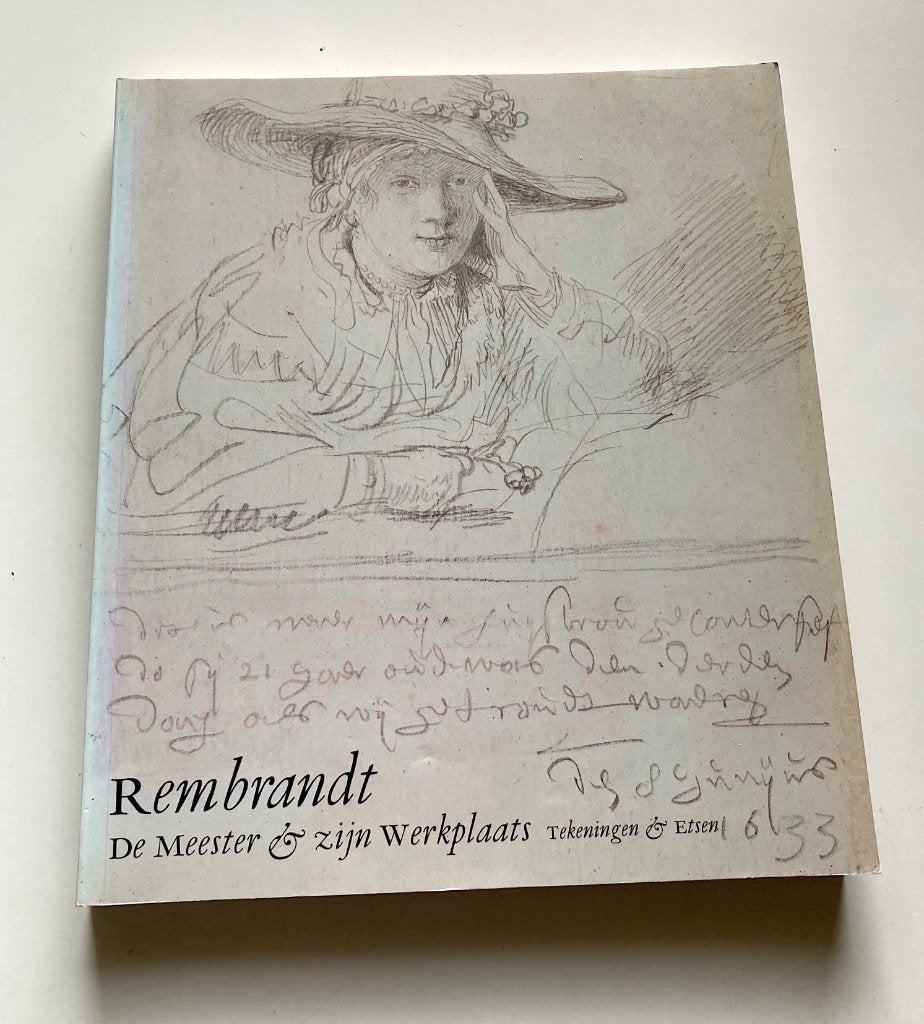 dit is naer mijn huijsvrou geconterfeit
do sij 21 jaer oud was den derden
dach als wij getroudt waeren
den 8 junijus
1633
Rembrandt
De Meester & zijn Werkplaats Tekeningen & Etsen